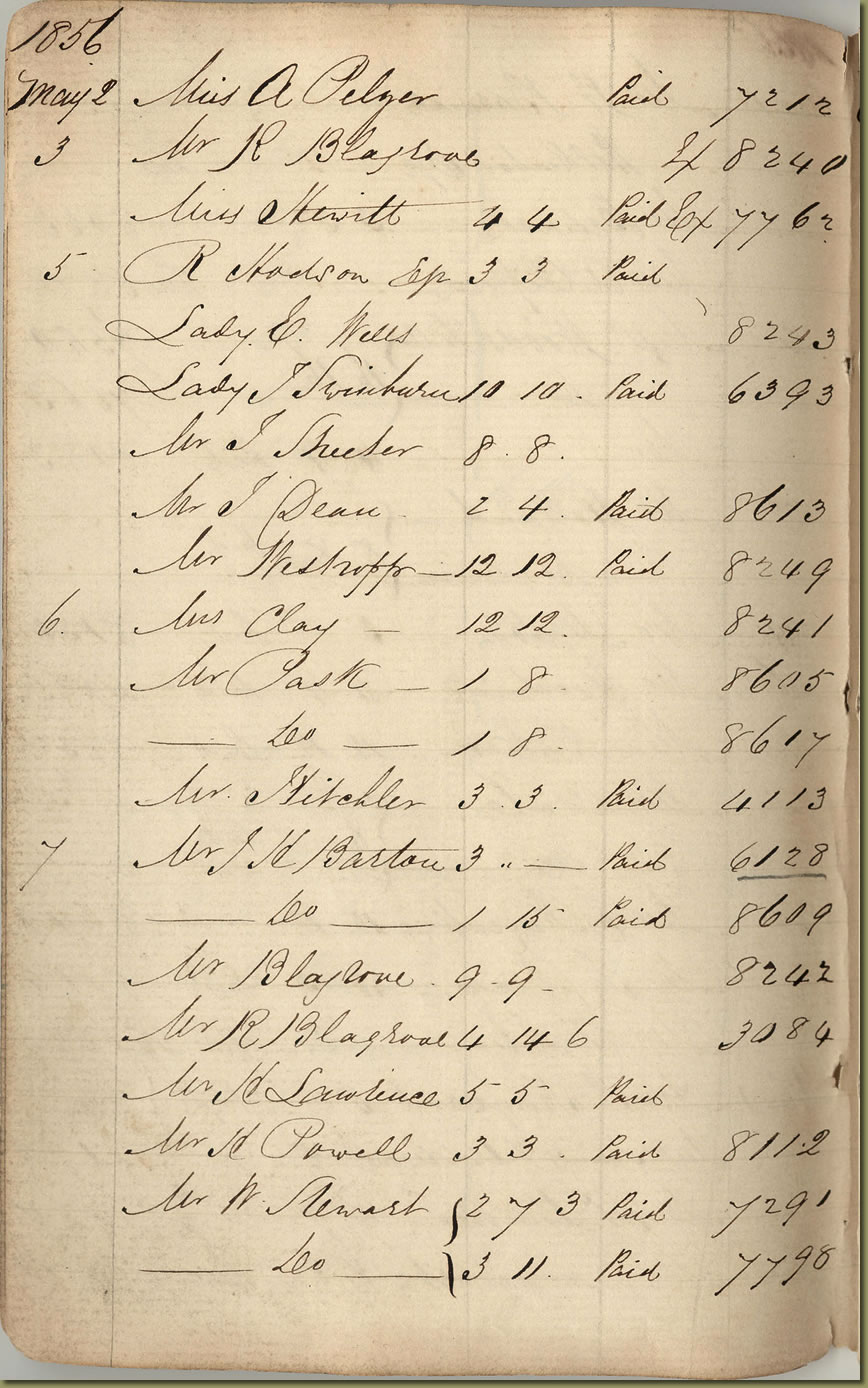 1856
May 2 Miss A Pelzer Paid 7212
3 Mr R Blagrove Ex 8240
Miss Hewitt 4 4 Paid Ex 7762
5 R Hodson Esp 3 3 Paid
Lady E. Wells 8243
Lady J Swinburn 10 10 . Paid 6393
Mr J Sheeter 8 . 8 .
Mr J Dean 2 4 . Paid 8613
Mr Westropp — 12 12 . Paid 8249
6. Mrs Clay — 12 12. 8241
Mr Pask — 1 8 8605
— Do — 1 8 . 8617
Mr. Hitchler 3 . 3 . Paid 4113
7 Mr J H Barton 3 " — Paid 6128
— Do — 1 15 Paid 8609
Mr Blagrove . 9 - 9 - 8242
Mr R Blagrove 4 14 6 3084
Mr H Lawrence 5 5 Paid
Mr H Powell 3 3 . Paid 8112
Mr W Stewart 2 7 3 Paid 7291
— Do — 3 11 . Paid 7798